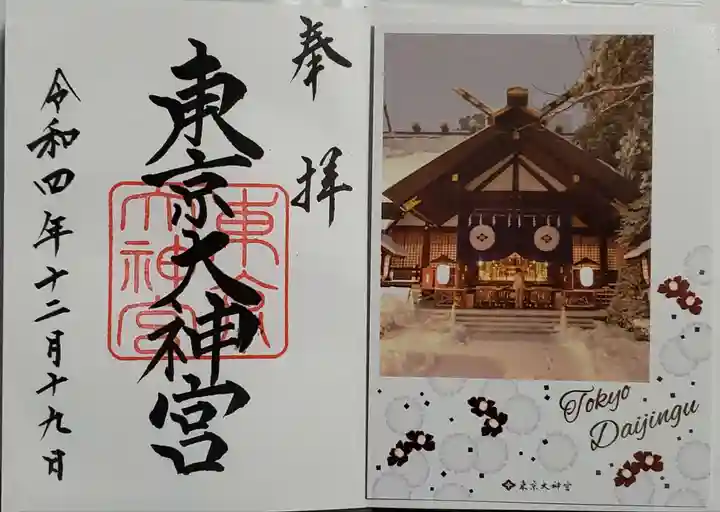 奉拝
東京大神宮
東京大神宮
令和四年十二月十九日
Tokyo
Daijingu
東京大神宮